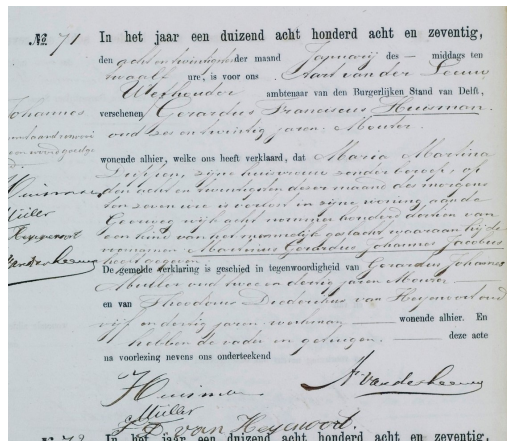 No. 71
In het jaar een duizend acht honderd acht en zeventig,
den acht en twintigsten der maand Januarij des — middags ten
twaalf ure, is voor ons Aart van der Leeuw
Wethouder ambtenaar van den Burgerlijken Stand van Delft,
verschenen Gerardus Franciscus Huisman.
oud zes en twintig jaren. Mouter.
wonende alhier, welke ons heeft verklaard, dat Maria Martina
zijne huisvrouw zonder beroep, op
den acht en twintigsten dezer maand des morgens
ten zeven ure is verlost in zijne woning aan de
Geerweg wijk acht nummer honderd dertien van
een kind van het mannelijk geslacht waaraan hij de
voornamen Marinus Gerardus Johannes Jacobus
heeft gegeven.
De gemelde verklaring is geschied in tegenwoordigheid van Gerardus Johannes
Muller oud twee en dertig jaren Mouter
en van Theodorus Diederikus van Heijenoort oud
vijf en dertig jaren. werkman — wonende alhier. En
hebben de vader en getuigen. — deze acte
na voorlezing nevens ons onderteekend
Huisman
A. van der Leeuw
Müller
T. D. van Heyenoort.
Johannes
Huisman
Müller
Heyenoort
van der Leeuw
No. 72 In het jaar een duizend acht honderd acht en zeventig,